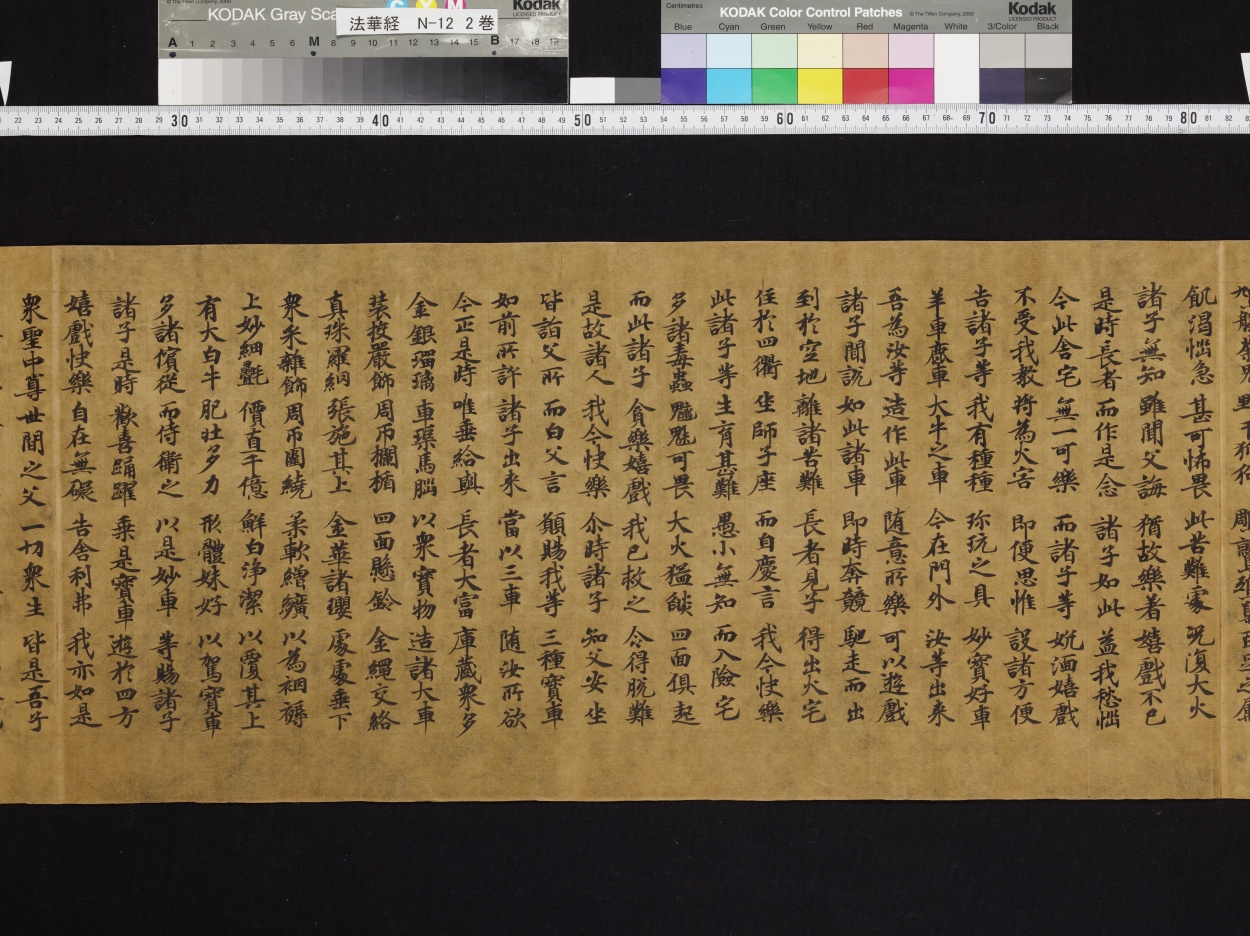 KODAK Gray Scale
法華経 N-12 2巻
Kodak
LICENSED PRODUCT
© The Tiffen Company, 2000
A 1 2 3 4 5 6 M 8 9 10 11 12 13 14 15 B 17 18 19
Centimetres
KODAK Color Control Patches
© The Tiffen Company, 2000
Kodak
LICENSED PRODUCT
Blue Cyan Green Yellow Red Magenta White 3/Color Black
22 23 24 25 26 27 28 29 30 31 32 33 34 35 36 37 38 39 40 41 42 43 44 45 46 47 48 49 50 51 52 53 54 55 56 57 58 59 60 61 62 63 64 65 66 67 68 69 70 71 72 73 74 75 76 77 78 79 80 81 82
飢渇惱急 甚可怖畏 此苦難處 況復大火
諸子無知 雖聞父誨 猶故樂著 嬉戲不已
是時長者 而作是念 諸子如此 益我愁惱
今此舎宅 無一可樂 而諸子等 躭湎嬉戲
不受我教 将為火害 即便思惟 設諸方便
告諸子等 我有種種 珎玩之具 妙寶好車
羊車鹿車 大牛之車 今在門外 汝等出来
吾為汝等 造作此車 随意所樂 可以遊戲
諸子聞説 如此諸車 即時奔競 馳走而出
到於空地 離諸苦難 長者見子 得出火宅
住於四衢 坐師子座 而自慶言 我今快樂
此諸子等 生育甚難 愚小無知 而入險宅
多諸毒蟲 魑魅可畏 大火猛燄 四面俱起
而此諸子 貪樂嬉戲 我已救之 令得脱難
是故諸人 我今快樂 尒時諸子 知父安坐
皆詣父所 而白父言 願賜我等 三種寶車
如前所許 諸子出来 當以三車 随汝所欲
今正是時 唯垂給與 長者大富 庫蔵衆多
金銀瑠璃 車璖馬脳 以衆寶物 造諸大車
装挍嚴飾 周帀欄楯 四面懸鈴 金繩交絡
真珠羅網 張施其上 金華諸瓔 處處垂下
衆采雜飾 周帀圍繞 柔軟繒纊 以為裀褥
上妙細㲲 價直千億 鮮白浄潔 以覆其上
有大白牛 肥壮多力 形體姝好 以駕寶車
多諸儐從 而侍衛之 以是妙車 等賜諸子
諸子是時 歡喜踊躍 乗是寶車 遊於四方
嬉戲快樂 自在無礙 告舎利弗 我亦如是
衆聖中尊 世間之父 一切衆生 皆是吾子